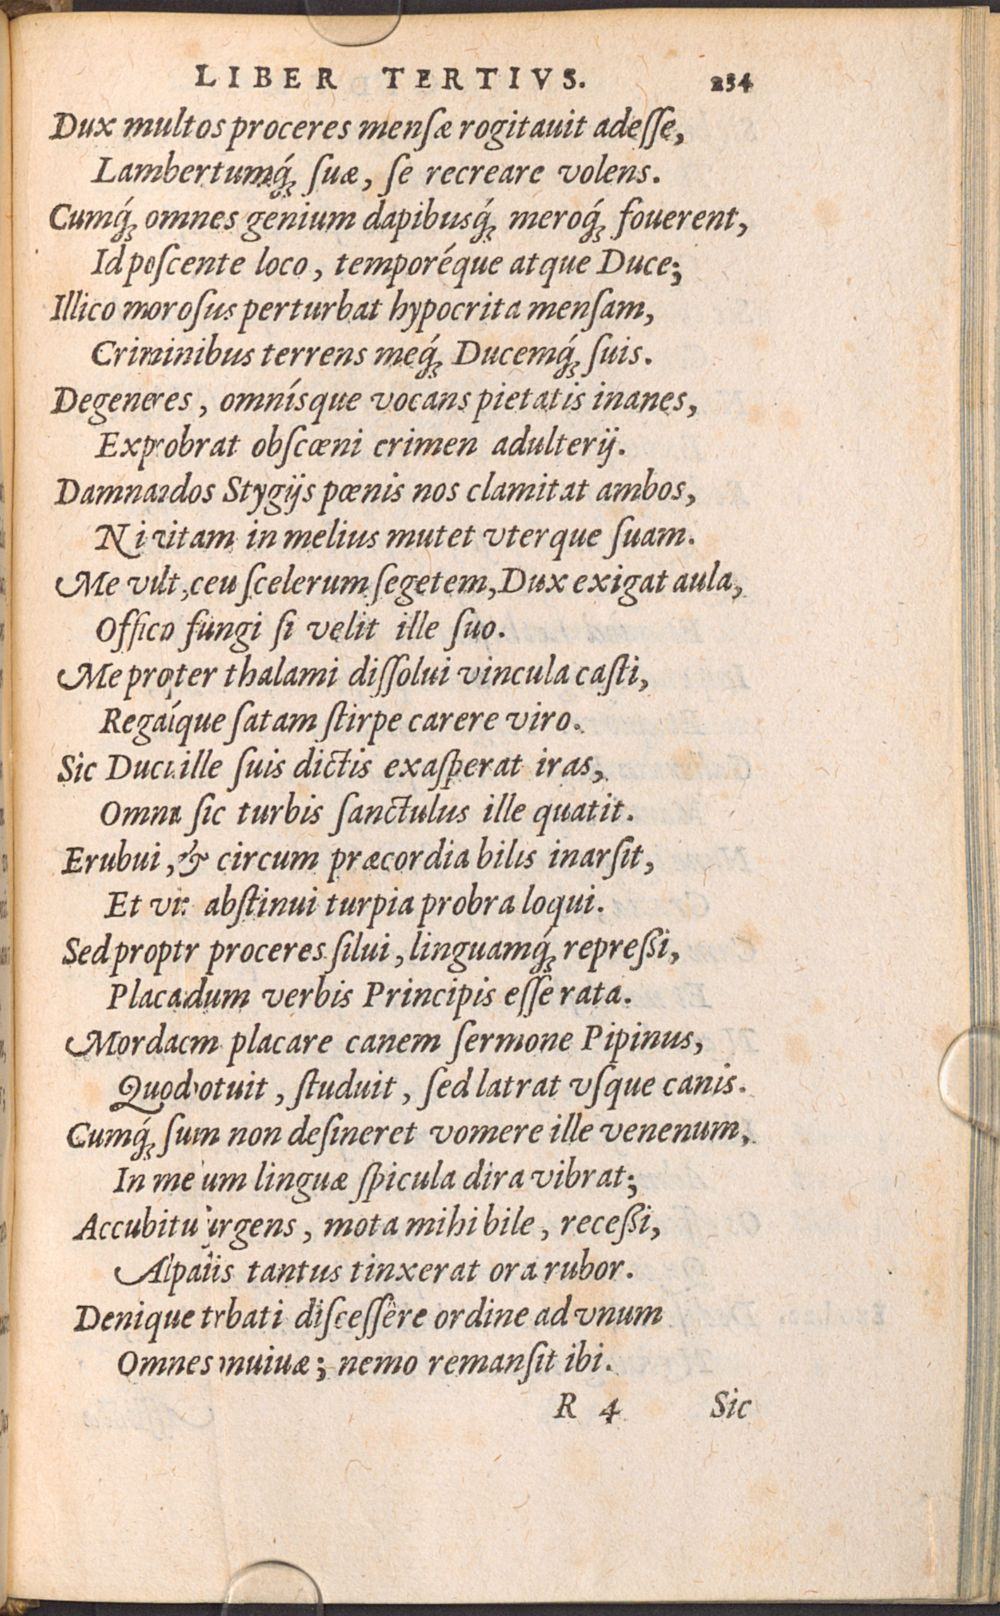 LIBER TERTIVS. 254
Dux multos proceres mensæ rogitauit adesse,
Lambertumq́; suæ, se recreare volens.
Cumq́; omnes genium dapibusq́; meroq́; fouerent,
Id poscente loco, temporéque atque Duce;
Illico morosus perturbat hypocrita mensam,
Criminibus terrens meq́; Ducemq́; suis.
Degeneres, omnísque vocans pietatis inanes,
Exprobrat obscœni crimen adulterij.
Damnandos Stygijs pœnis nos clamitat ambos,
Ni vitam in melius mutet vterque suam.
Me vult, ceu scelerum segetem, Dux exigat aula,
Officio fungi si velit ille suo.
Me propter thalami dissolui vincula casti,
Regalíque satam stirpe carere viro.
Sic Duci ille suis dictis exasperat iras,
Omnia sic turbis sanctulus ille quatit.
Erubui, & circum præcordia bilis inarsit,
Et vix abstinui turpia probra loqui.
Sed proptr proceres silui, linguamq́; repressi,
Placadum verbis Principis esse rata.
Mordacm placare canem sermone Pipinus,
Quod potuit, studuit, sed latrat vsque canis.
Cumq́; suum non desineret vomere ille venenum,
In me um linguæ spicula dira vibrat;
Accubitu urgens, mota mihi bile, recessi,
Alpaiis tantus tinxerat ora rubor.
Denique trbati discessêre ordine ad vnum
Omnes nuiuæ; nemo remansit ibi.
R 4 Sic